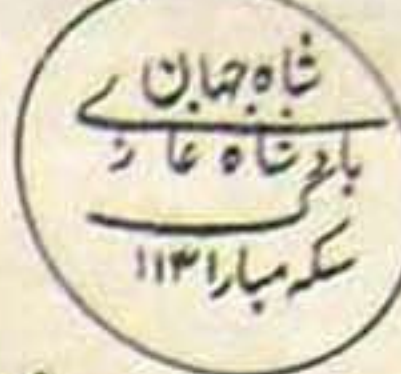 شاہ جہان
بادشاہ غازی
سکہ مبارک ۱۱۳۱